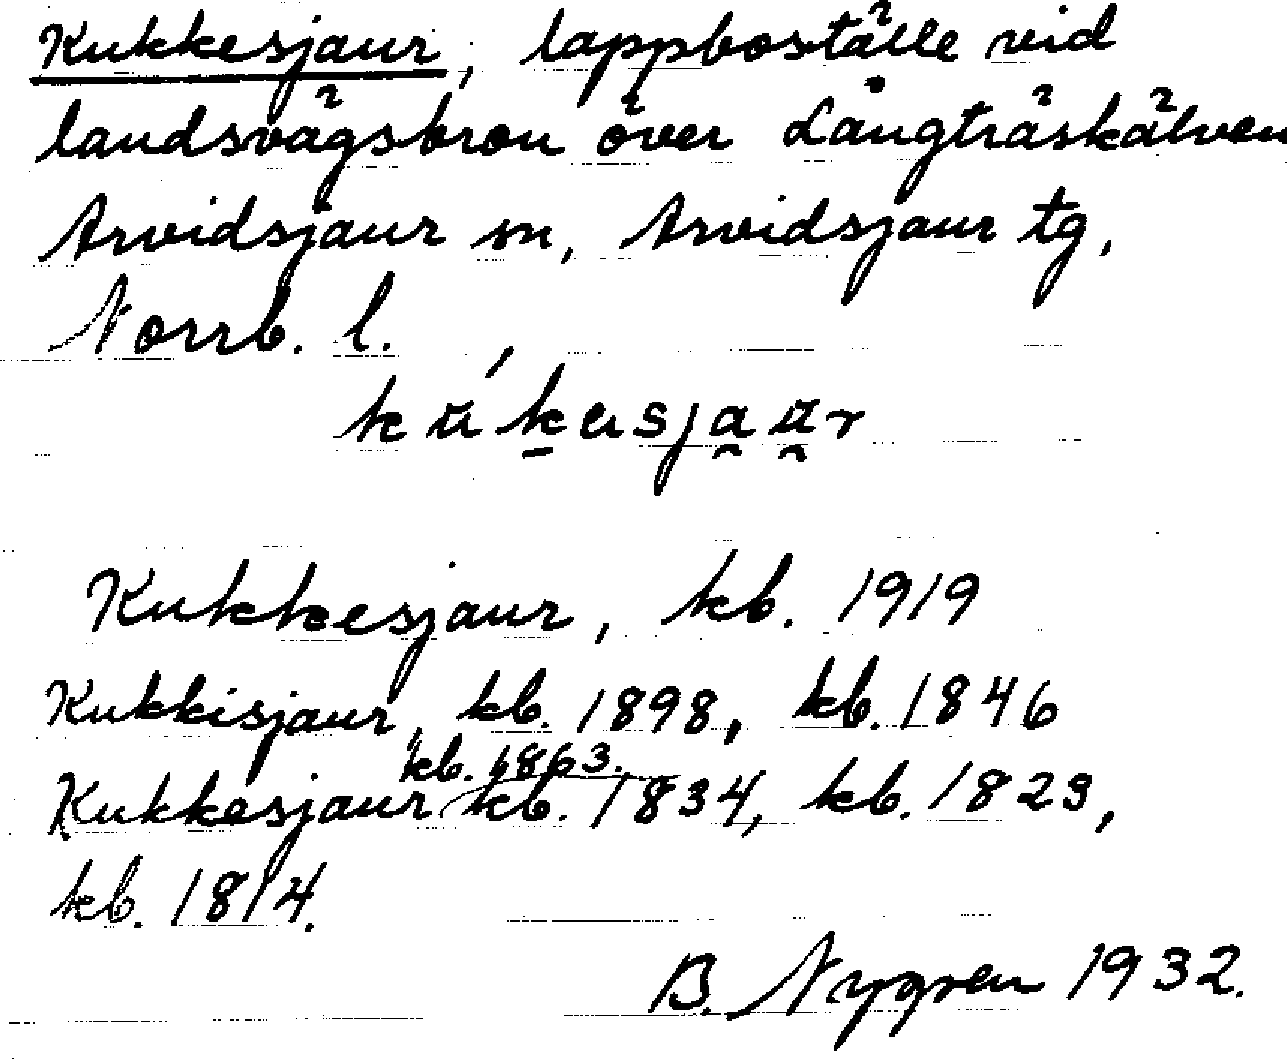 Kukkesjaur, lappboställe vid
landsvägsbron över Långträskälven
Arvidsjaur sn, Arvidsjaur tg,
Norrb. l.
Kukkesjaur, kb. 1919
Kukkisjaur, kb. 1898, kb. 1846
kb. 1863.
Kukkesjaur kb. 1834, kb. 1823,
kb. 1814.
B. Nygren 1932.